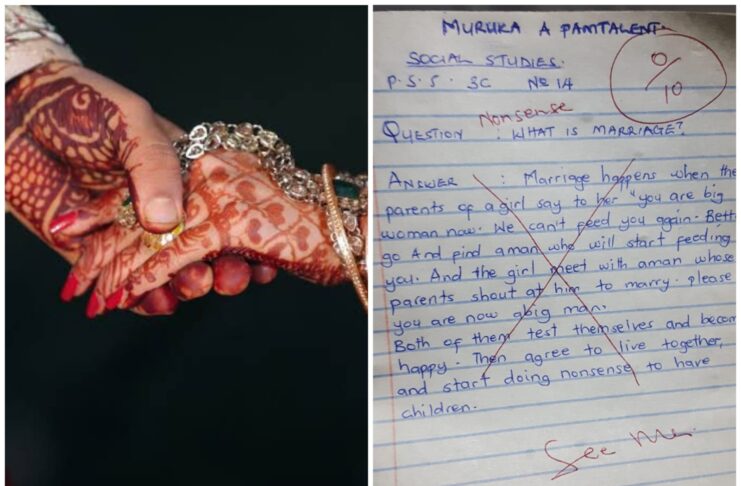 MURUKA A PANTALENT.
SOCIAL STUDIES.
P.S.S. 3C № 14
0/10
Nonsense
QUESTION : WHAT IS MARRIAGE?
ANSWER : Marriage happens when the
parents of a girl say to her "you are big
woman now. We can't feed you again. Bett
go And find a man who will start feeding
you. And the girl meet with a man whose
parents shout at him to marry. please
you are now a big man.
Both of them test themselves and becom
happy. Then agree to live together,
and start doing nonsense to have
children.
See Me.